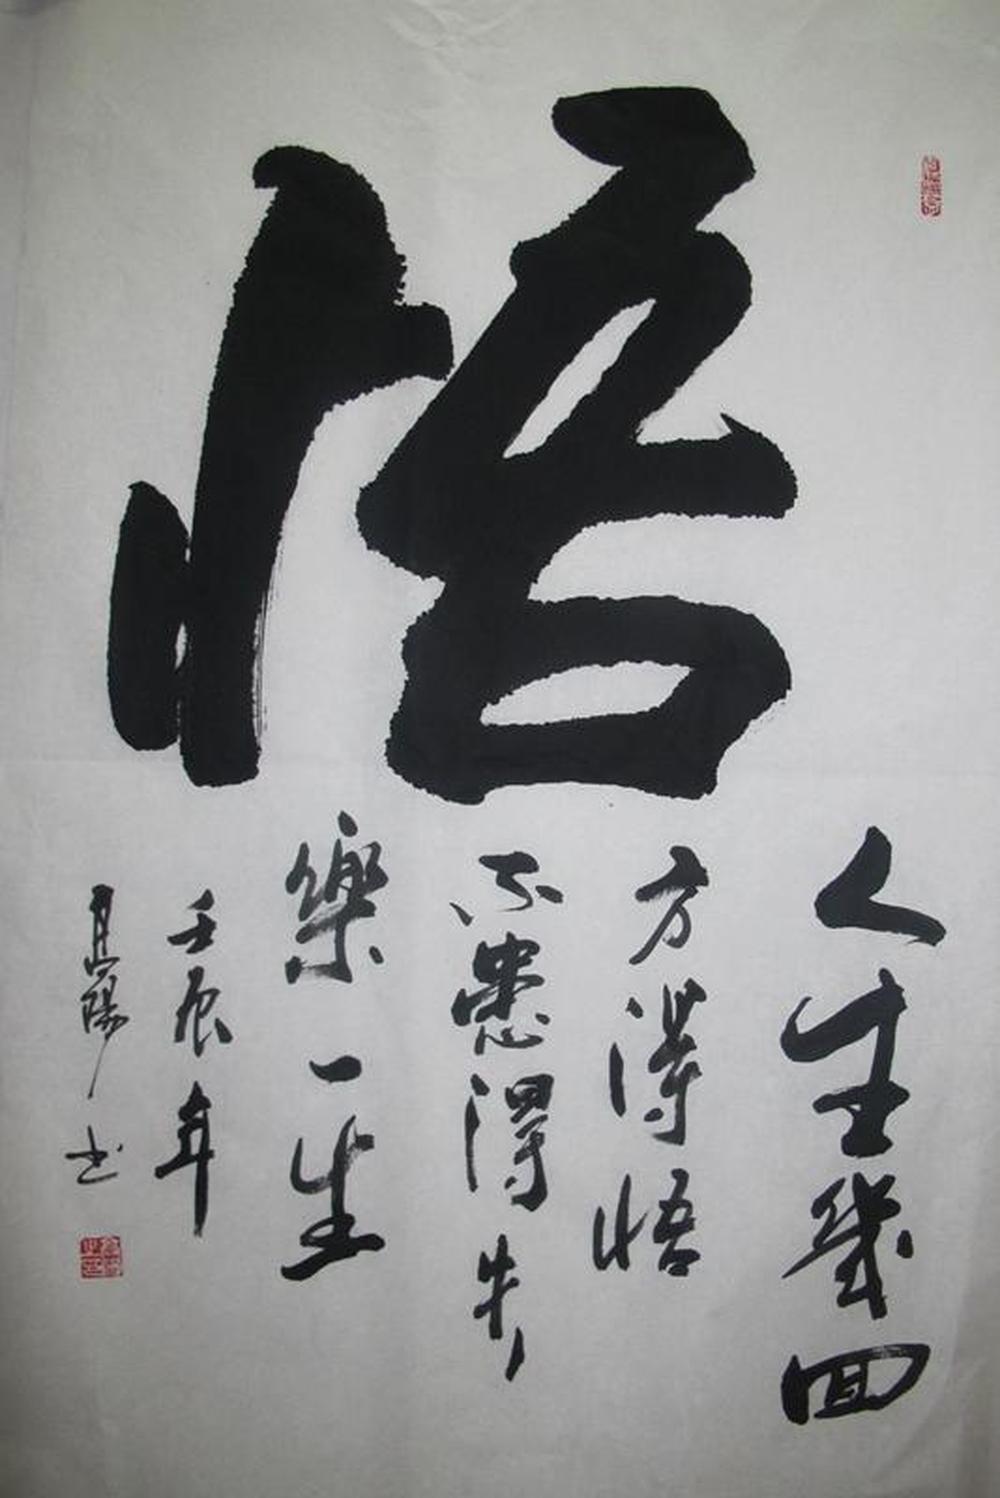 悟
人生幾回
方得悟
不患得失
樂一生
壬辰年
陽书